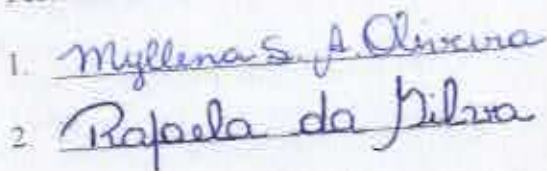 1. Myllena S. A. Oliveira
2. Rafaela da Silva